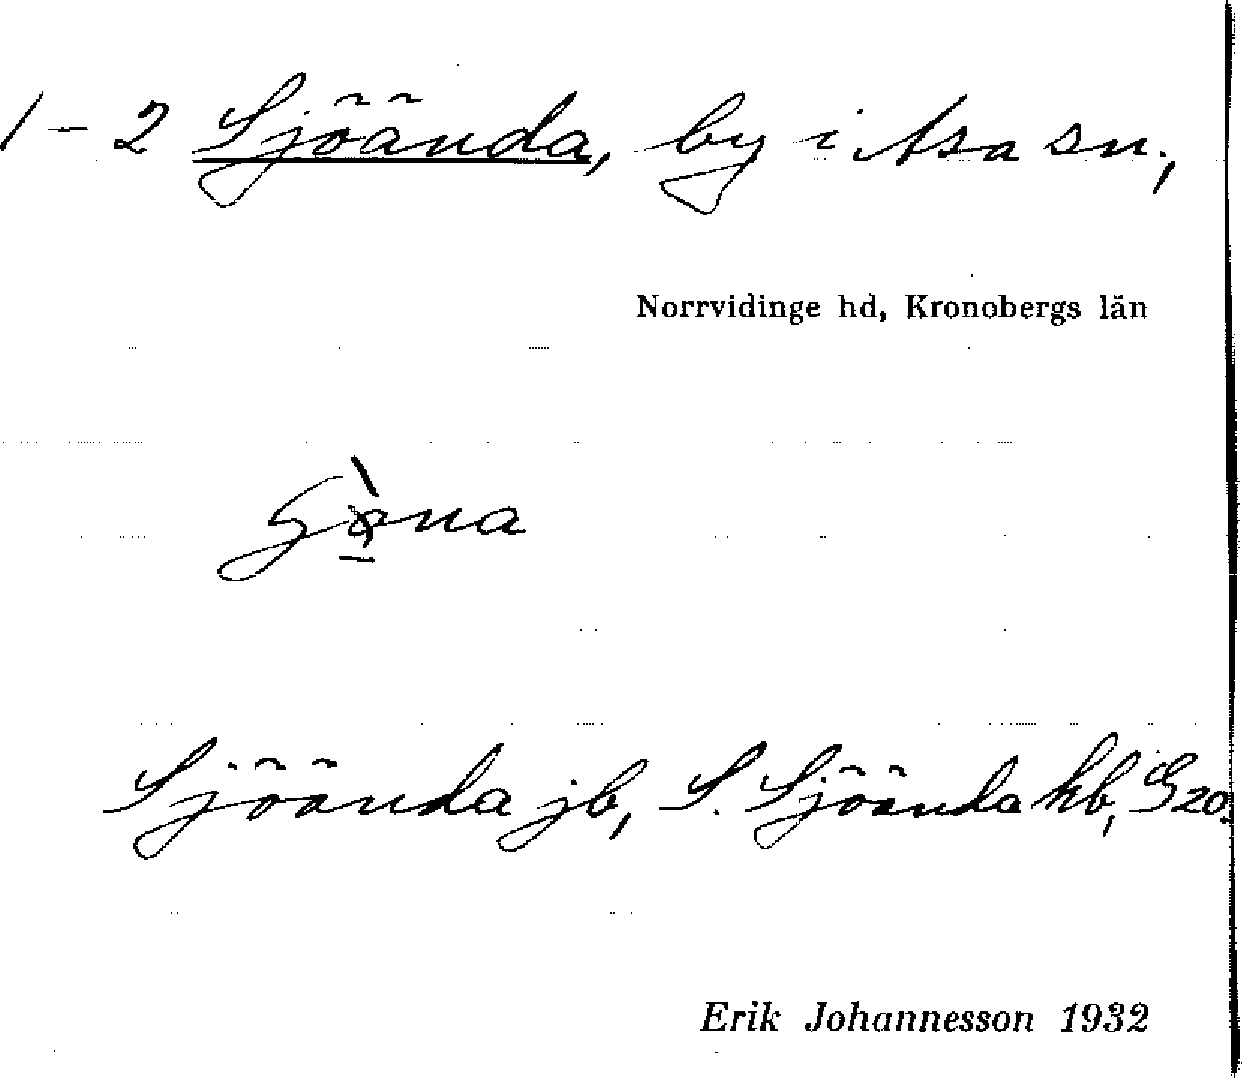 1-2 Sjöända, by i Asa sn.,
Norrvidinge hd, Kronobergs län
Sjöända jb, S. Sjöända kb, G 20.
Erik Johannesson 1932